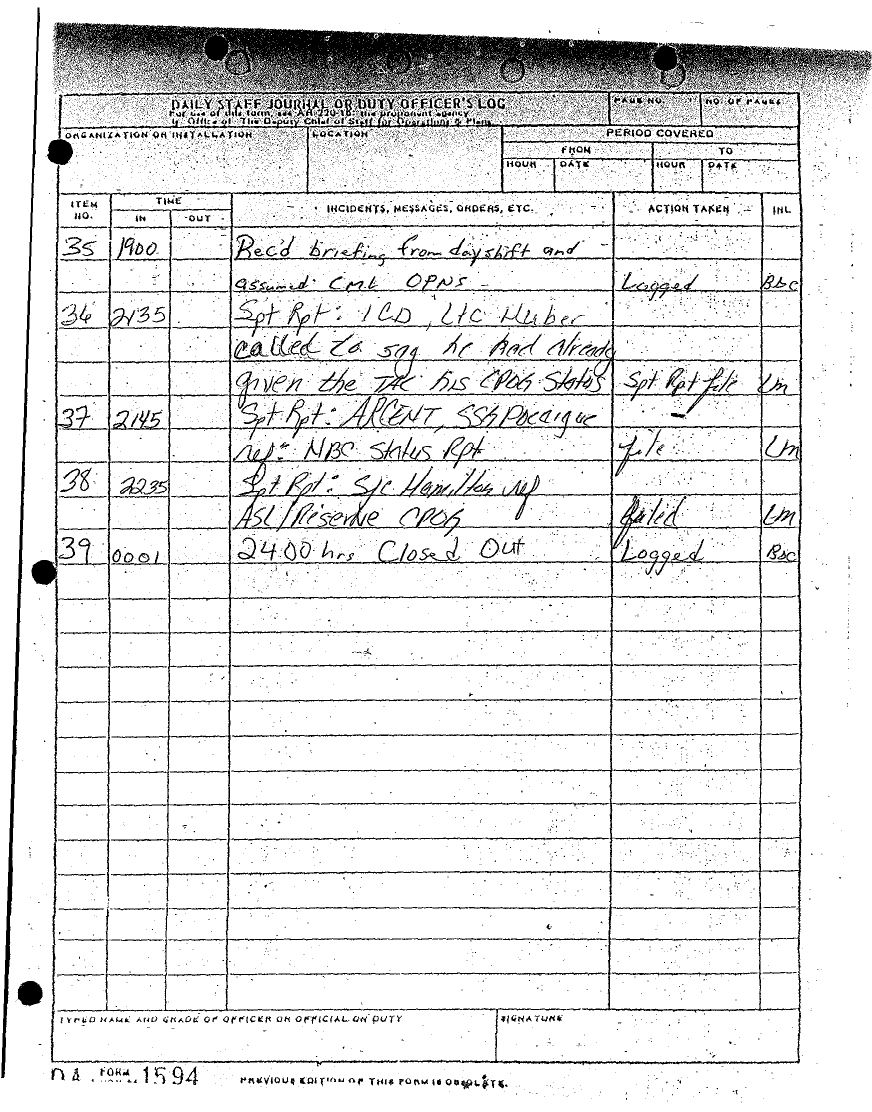 DAILY STAFF JOURNAL OR DUTY OFFICER'S LOG
For use of this form, see AR 220-15; the proponent agency
is Office of The Deputy Chief of Staff for Operations & Plans.
PAGE NO. NO. OF PAGES
ORGANIZATION OR INSTALLATION LOCATION PERIOD COVERED
FROM TO
HOUR DATE HOUR DATE
ITEM NO. TIME INCIDENTS, MESSAGES, ORDERS, ETC. ACTION TAKEN INL
IN OUT
35 1900 Rec'd briefing from day shift and
assumed CML OPNS Logged BDC
36 2135 Spt Rpt: 1CD, LTC Huber
called to say he had already
given the TAC his CPOG Status Spt Rpt file LM
37 2145 Spt Rpt: ARCENT, SSG
ref: NBC Status Rpt file LM
38 2235 Spt Rpt: Sfc Hamilton ref
ASL/Reserve CPOG filed LM
39 0001 2400 hrs Closed Out Logged BDC
TYPED NAME AND GRADE OF OFFICER OR OFFICIAL ON DUTY SIGNATURE
DA FORM 1594 PREVIOUS EDITION OF THIS FORM IS OBSOLETE.